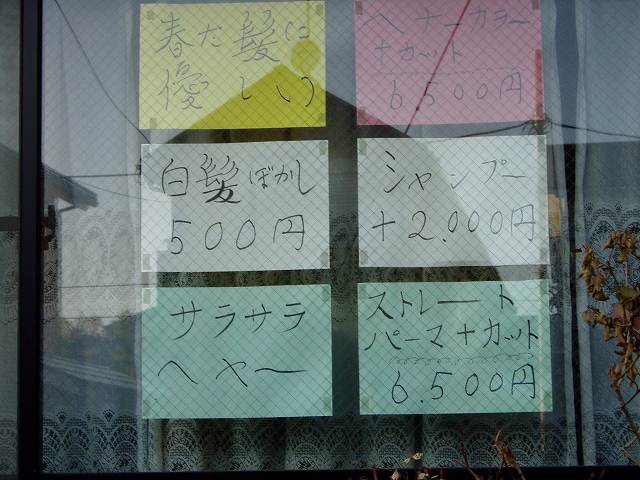 春だ髪に
優しい
ヘナーカラー
+カット
6.500円
白髪ぼかし
500円
シャンプー
+2.000円
サラサラ
ヘヤー
ストレート
パーマ+カット
6.500円